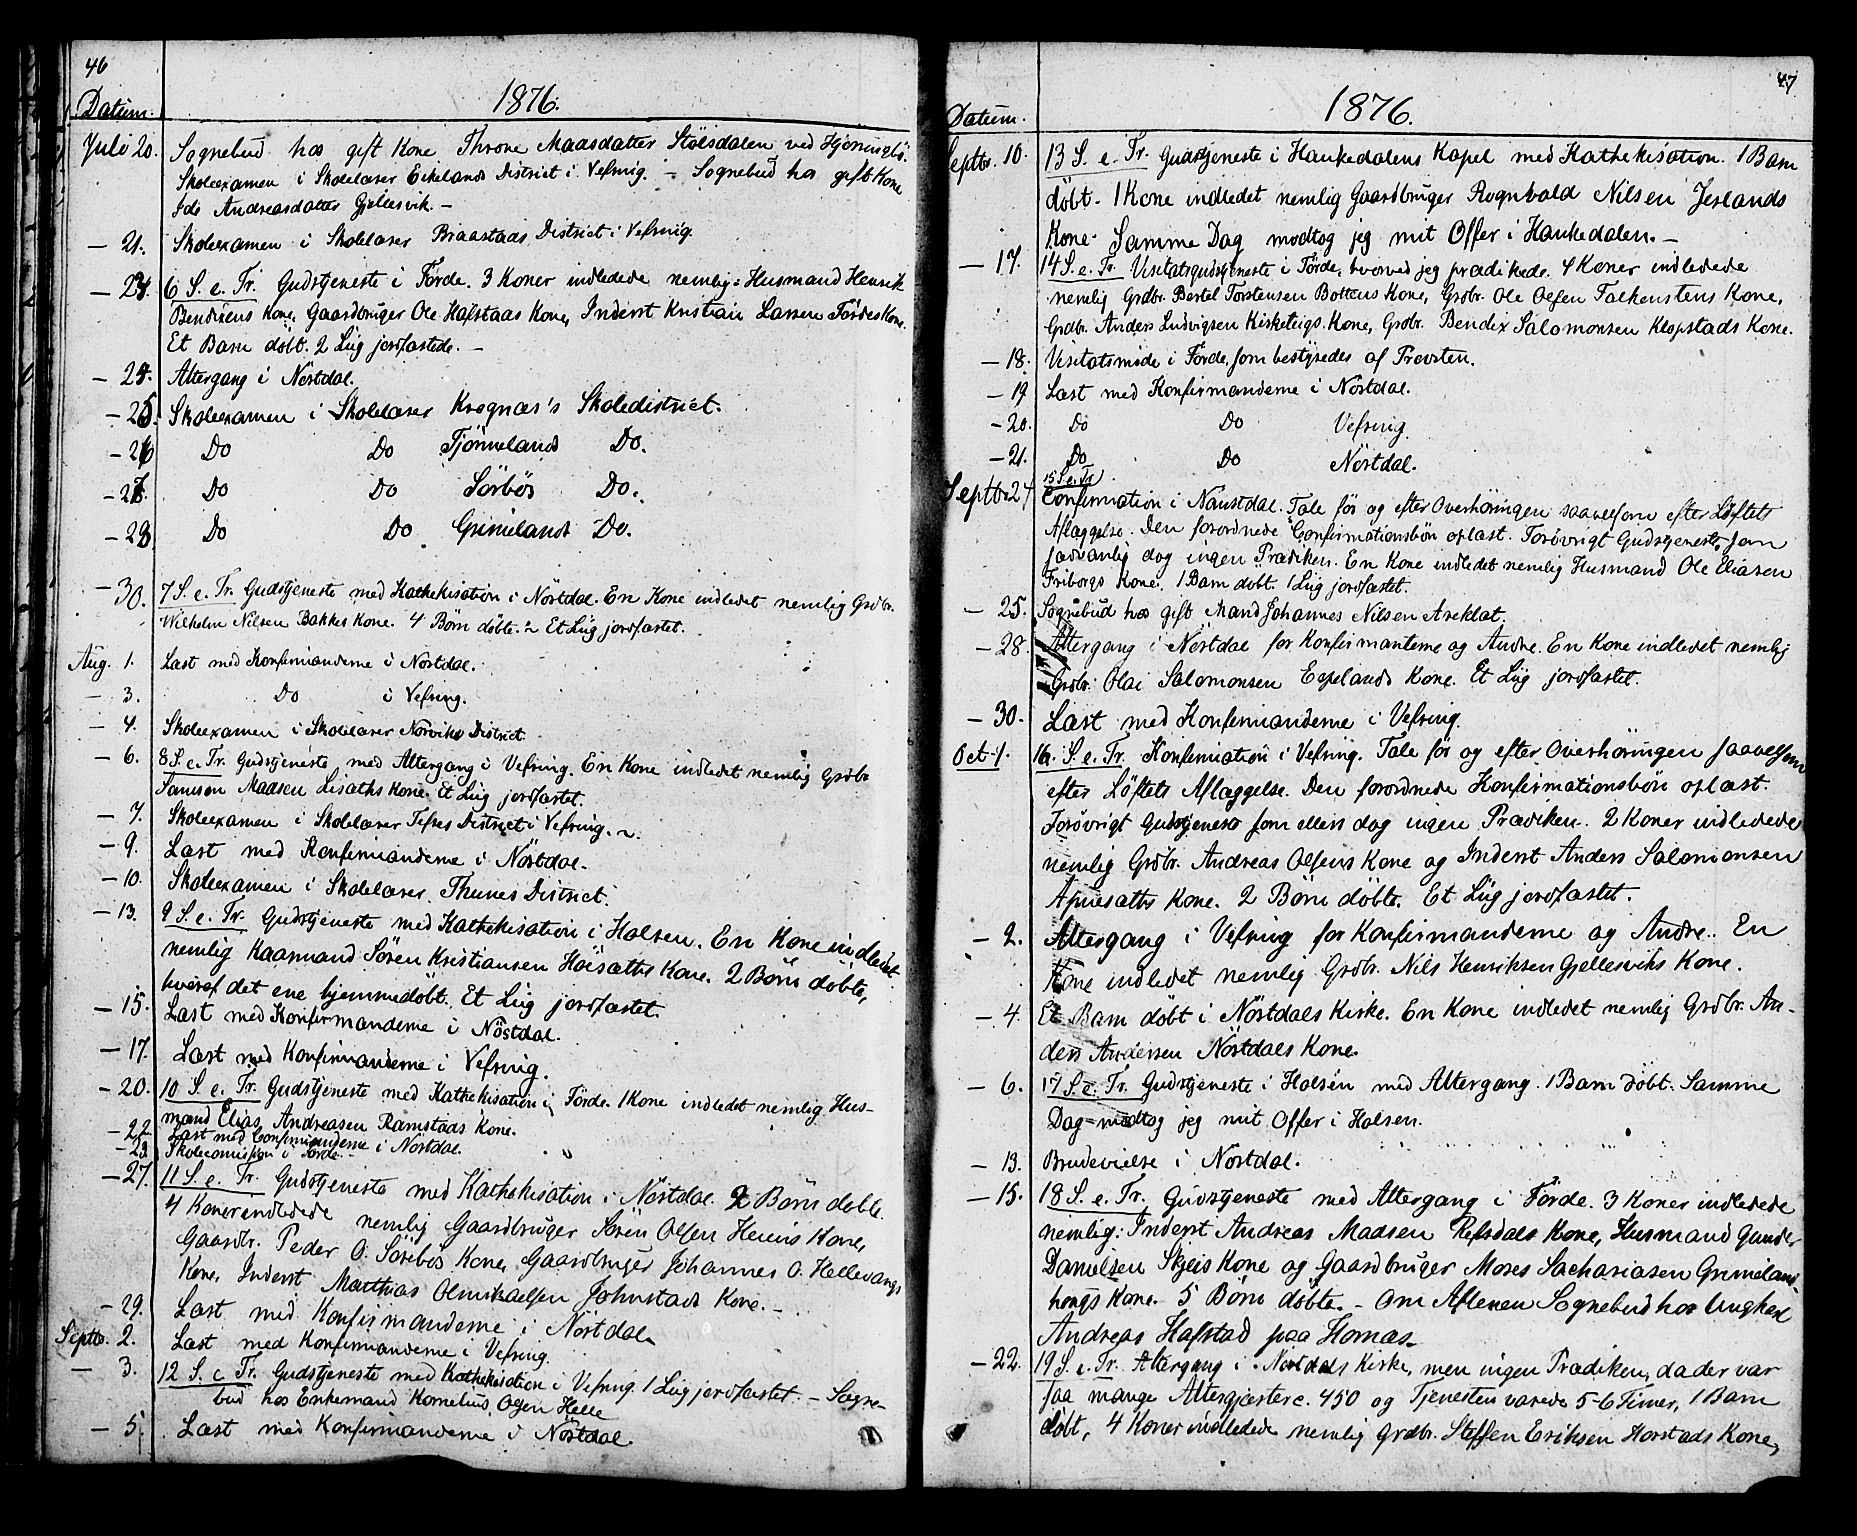 46
Datum. 1876.
Juli 20. Sognebud hos gift Kone Throne Maasdatter Stölsdalen ved
Skoleexamen i Skolelærer Eikelands District i Vefring. – Sognebud hos gift Kone
Ida Andreasdatter Gjellesvik. –
– 21. Skoleexamen i Skolelærer Braastads District i Vefring.
– 23. 6 S. e. Tr. Gudstjeneste i Förde. 3 Koner indledede nemlig: Husmand Henrik
Bendixens Kone, Gaardbruger Ole Hafstads Kone, Inderst Kristian Larsen Fördes Kone.
Et Barn döbt. 2 Liig jordfæstede. –
– 24. Altergang i Nöstdal.
– 25. Skoleexamen i Skolelærer Krognæs's Skoledistrict.
– 26 Do Do Tjönnelands Do.
– 27. Do Do Sörbös Do.
– 28 Do Do Grimelands Do.
– 30. 7 S. e. Tr. Gudstjeneste med Kathekisation i Nöstdal. En Kone indledet nemlig Grdbr.
Wilhelm Nilsen Bakkes Kone. 4 Börn döbte. Et Liig jordfæstet.
Aug. 1. Læst med Konfirmanderne i Nöstdal.
– 3. Do i Vefring.
– 4. Skoleexamen i Skolelærer Norviks District.
– 6. 8 S. e. Tr. Gudstjeneste med Altergang i Vefring. En Kone indledet nemlig Grdbr
Samson Madsen Lisæths Kone. Et Liig jordfæstet.
– 7. Skoleexamen i Skolelærer Tefres District i Vefring.
– 9. Læst med Konfirmanderne i Nöstdal.
– 10. Skoleexamen i Skolelærer Thunes District.
– 13. 9 S. e. Tr. Gudstjeneste med Kathekisation i Holsen. En Kone indledet
nemlig Kaarmand Sören Kristiansen Höisæths Kone. 2 Börn döbte,
hvoraf det ene hjemmedöbt. Et Liig jordfæstet.
– 15. Læst med Konfirmanderne i Nöstdal.
– 17. Læst med Konfirmanderne i Vefring.
– 20. 10 S. e. Tr. Gudstjeneste med Kathekisation i Förde. 1 Kone indledet nemlig Hus-
mand Elias Andreasen Ramstads Kone.
– 22. Læst med Confirmanderne i Nöstdal.
– 23. Skolecomission i Förde.
– 27. 11 S. e. Tr. Gudstjeneste med Kathekisation i Nöstdal. 2 Börn döbte.
4 Koner indledede nemlig Gaardbruger Sören Olsen Heiens Kone,
Gaardbr. Peder O. Sörebös Kone, Gaardbruger Johannes O. Hellevangs
Kone, Inderst Matthias Olmikaelsen Johnstads Kone. –
– 29. Læst med Konfirmanderne i Nöstdal
Septbr. 2. Læst med Konfirmanderne i Vefring.
– 3. 12 S. e. Tr. Gudstjeneste med Kathekisation i Vefring. 1 Liig jordfæstet. – Sogne-
bud hos Enkemand Kornelius Olsen Helle
– 5. Læst med Konfirmanderne i Nöstdal.
47
Datum. 1876.
Septbr. 10. 13 S. e. Tr. Gudstjeneste i Haukedalens Kapel med Kathekisation. 1 Barn
döbt. 1 Kone indledet nemlig Gaardbruger Rognvald Nilsen Jerlands
Kone. Samme Dag modtog jeg mit Offer i Haukedalen. –
– 17. 14 S. e. Tr. Visitatsgudstjeneste i Förde, hvorved jeg prædikede. 4 Koner indledede
nemlig Grdbr. Bertel Torstensen Bottens Kone, Grdbr. Ole Olsen Falkenstens Kone,
Grdbr. Anders Ludvigsen Kirketeigs Kone, Grdbr. Bendix Salomonsen Klopstads Kone.
– 18. Visitatsmöde i Förde, som bestyredes af Provsten.
– 19 Læst med Konfirmanderne i Nöstdal.
– 20. Do Do Vefring.
– 21. Do Do Nöstdal.
15 S. e. Tr.
Septbr 24 Confirmation i Naustdal. Tale för og efter Overhöringen saavelsom efter Löftets
Aflæggelse. Den forordnede Confirmationsbön oplæst. Forövrigt Gudstjeneste som
sædvanlig dog ingen Prædiken. En Kone indledet nemlig Husmand Ole Eliasen
Friborgs Kone. 1 Barn döbt. 1 Liig jordfæstet.
– 25. Sognebud hos gift Mand Johannes Nilsen Areklat.
– 28. Altergang i Nöstdal for Konfirmanterne og Andre. En Kone indledet nemlig
Grdbr. Olai Salomonsen Espelands Kone. Et Liig jordfæstet.
– 30. Læst med Konfirmanderne i Vefring.
Oct. 1. 16. S. e. Tr. Konfirmation i Vefring. Tale för og efter Overhöringen saavelsom
efter Löftets Aflæggelse. Den forordnede Konfirmationsbön oplæst.
Forövrigt Gudstjeneste som ellers dog ingen Prædiken. 2 Koner indledede
nemlig Grdbr. Andreas Olsens Kone og Inderst Anders Salomonsen
Apnesæths Kone. 2 Börn döbte. Et Liig jordfæstet.
– 2. Altergang i Vefring for Konfirmanderne og Andre. En
Kone indledet nemlig Grdbr. Nils Henriksen Gjellesviks Kone.
– 4. Et Barn döbt i Nöstdals Kirke. En Kone indledet nemlig Grdbr. An-
ders Andersen Nöstdals Kone.
– 6. 17 S. e. Tr. Gudstjeneste i Holsen med Altergang. 1 Barn döbt. Samme
Dag modtog jeg mit Offer i Holsen.
– 13. Brudevielse i Nöstdal.
– 15. 18 S. e. Tr. Gudstjeneste med Altergang i Förde. 3 Koner indledede
nemlig: Inderst Andreas Madsen Refsdals Kone, Husmand Gunder
Danielsen Skjeis Kone og Gaardbruger Moses Sachariasen Grimeland-
hougs Kone. 5 Börn döbte. – Om Aftenen Sognebud hos Ungkarl
Andreas Hafstad paa Hornæs.
– 22. 19 S. e. Tr. Altergang i Nöstdals Kirke, men ingen Prædiken, da der var
saa mange Altergjester c. 450 og Tjenesten varede 5-6 Timer, 1 Barn
döbt, 4 Koner indledede nemlig Grdbr. Steffen Eriksen Horstads Kone,